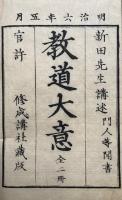 明治六年五月
新田先生講述 門人等聞書
教道大意 全二冊
官許 修成講社蔵版